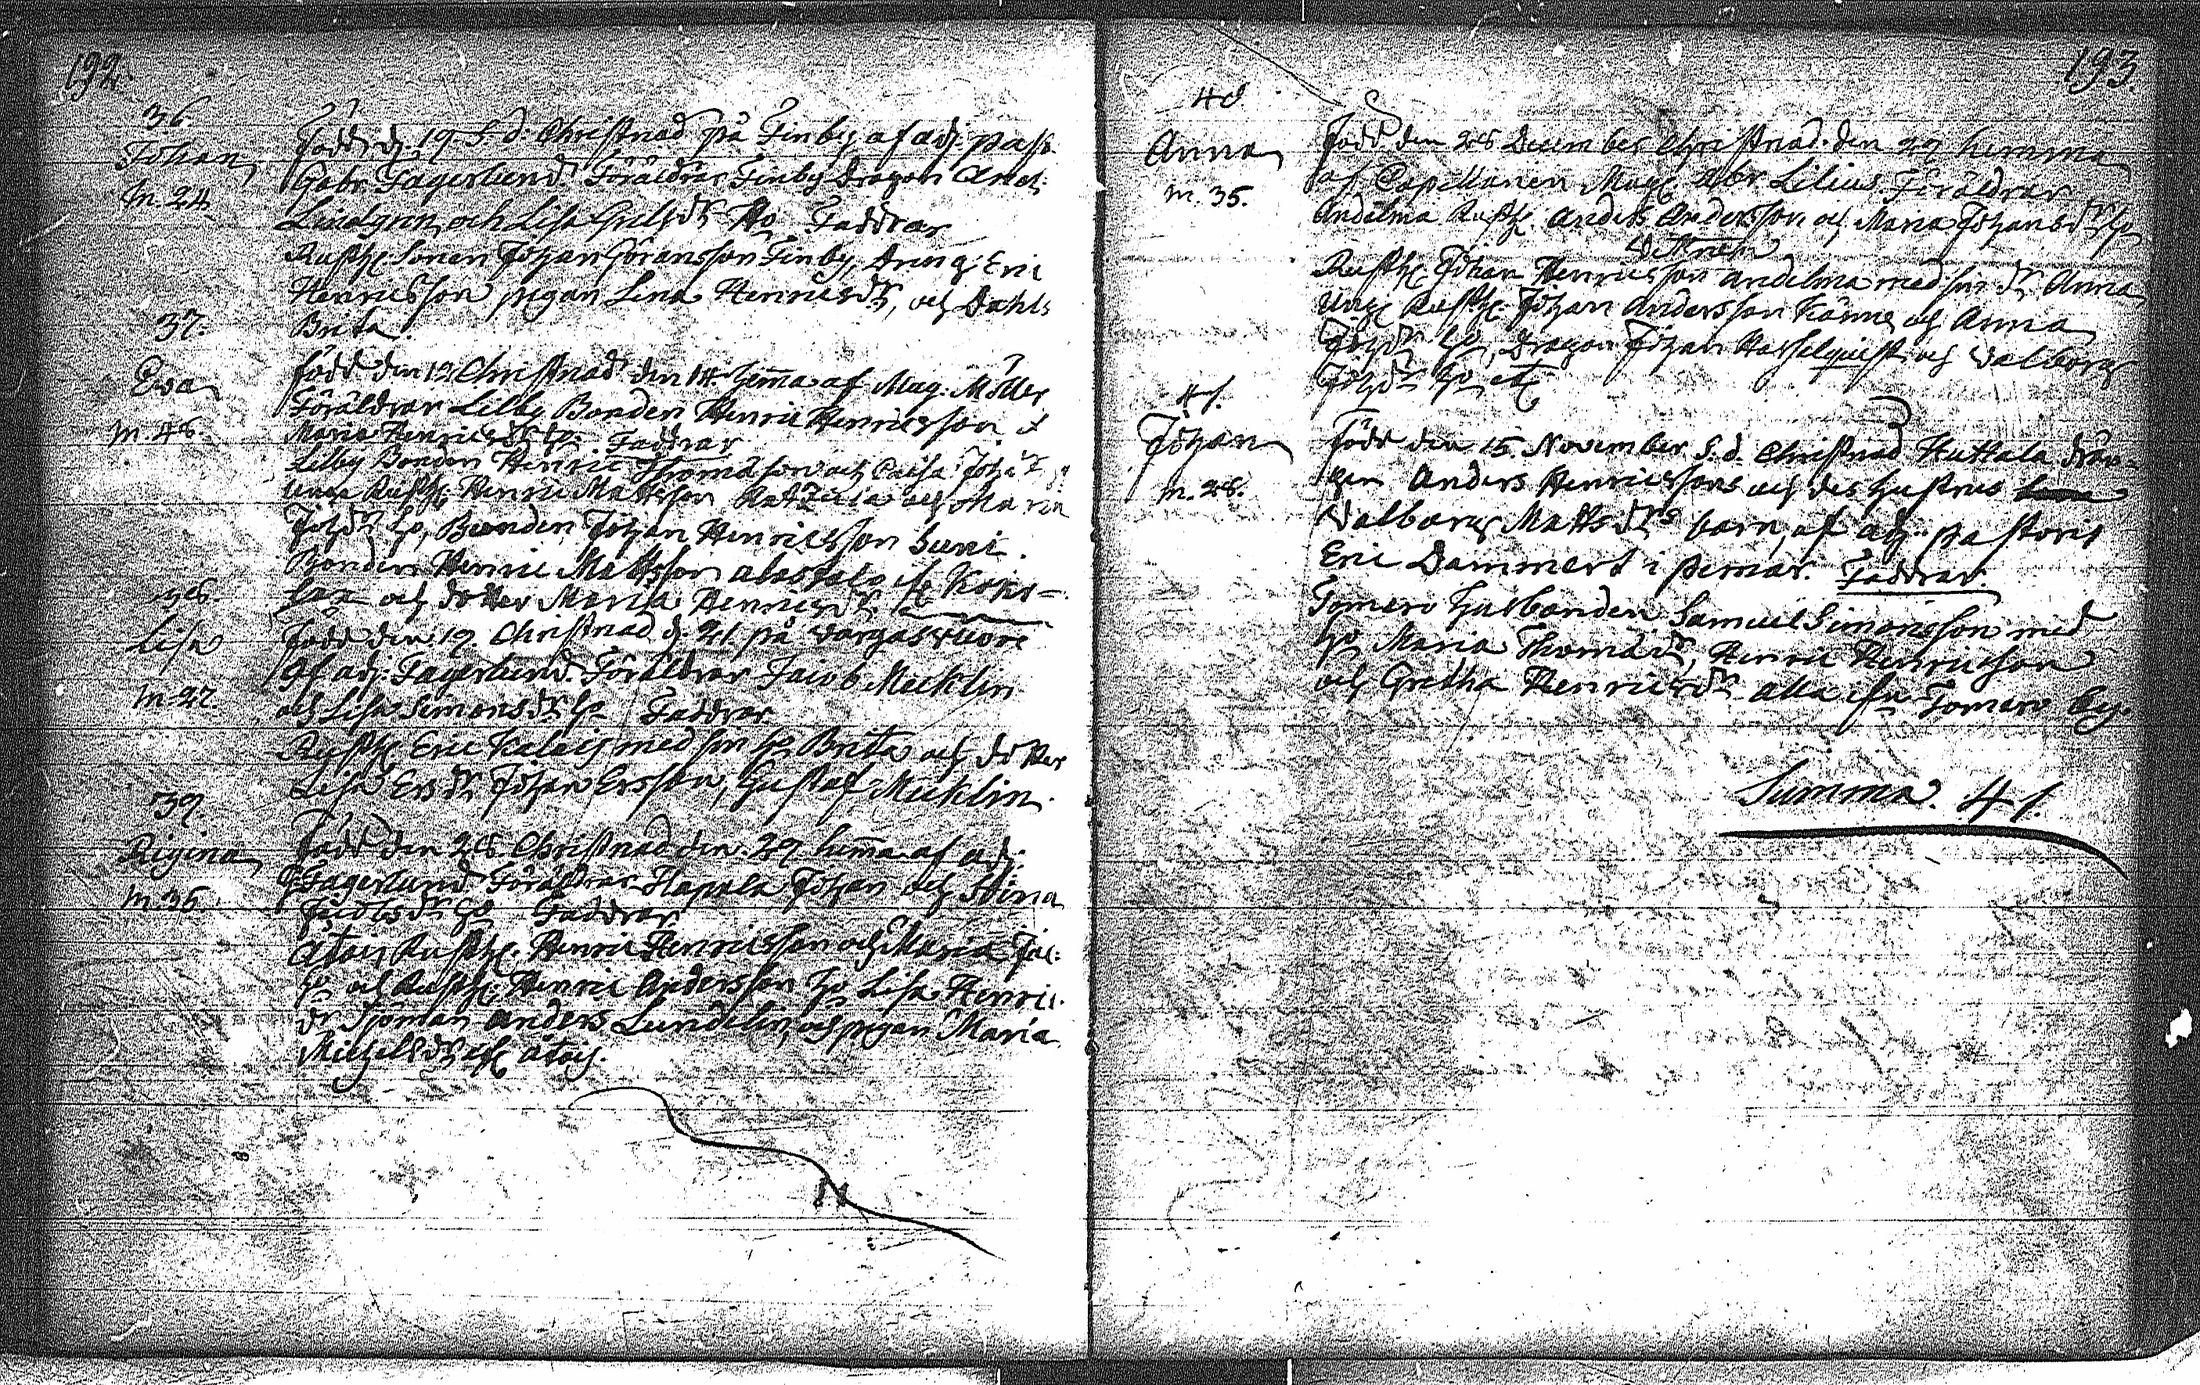 192.
36.
Johan
m. 24.
född d. 19 S. d. Christnad på Finby af adj. past.
Gabr. Fagerlund. Föräldrar Finby Dragon And:
Lindgren och Lisa dr Ho Faddrar
Rusth. Sonen Johan Göransson Finby, dräng: Eric
Henricsson pigan Lena Henricsdr, och Dahls
Brita.
37.
Eva
m. 48.
född den 12 Christnad den 14 hema af Mag: Möller
Föräldrar Lilby Bonden Henric Henricsson o
Maria Henricsdr ho. Faddrar
Lilby Bonden Henric Thomasson och Caisa Joh:
unge Rusth. Henric Mattsson och Maria
Johdr ho, Bonden Johan Henricsson Suni.
Bonden Henric Mattsson
och dotter Maria Henricsdr
38.
Lisa
m. 27.
född den 19. Christnad d. 21 på Vargasvuore
af adj: Fagerlund. Föräldrar Jacob Mecklin
och Lisa Simonsdr ho Faddrar
Rusth Eric Kaleis med sin ho Brita och dotter
Lisa Ersdr, Johan Ersson, Gustaf Mecklin.
39.
Rigina
m. 36.
född den 28. Christnad den 29 hema af adj:
Fagerlund Föräldrar Hapala Johan och Stina
Jacobsdr ho Faddrar
Atois Rusth. Henric Henricsson och Maria Jac:
ho och Rusth: Henric Andersson ho Lisa Henric
dr Sjöman Anders Lundelin, och pigan Maria
Michelsdr ifr Atois.
193.
40
Anna
m. 35.
född den 28 December Christnad den 29 hemma
af Capellanen Mag. Abr Lilius. Föräldrar
Andelma Rusth. Anders Andersson och Maria Johansdr ho
Rusth. Johan Henricsson Andelma med sin dr Anna
unge Rusth. Johan Andersson och Anna
Johdr ho, Dragon Johan Hasselquist och Valborg
Johdr ho etc
41.
Johan
m. 28.
född den 15 November S. d. Christnad Huttala drän-
gen Anders Henricssons och des hustrus
Valborg Mattsdrs barn, af adj: pastoris
Eric Dammert i pemar. Faddrar.
Tomero husbonden Samuel Simonsson med
ho Maria Thomasdr, Henric Henricsson
och Gretha Henricsdr alla ifrn Tomero by.
Summa. 41.